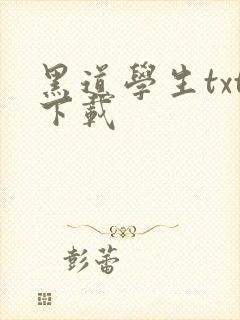 黑道學生txt
下載
彭蕾